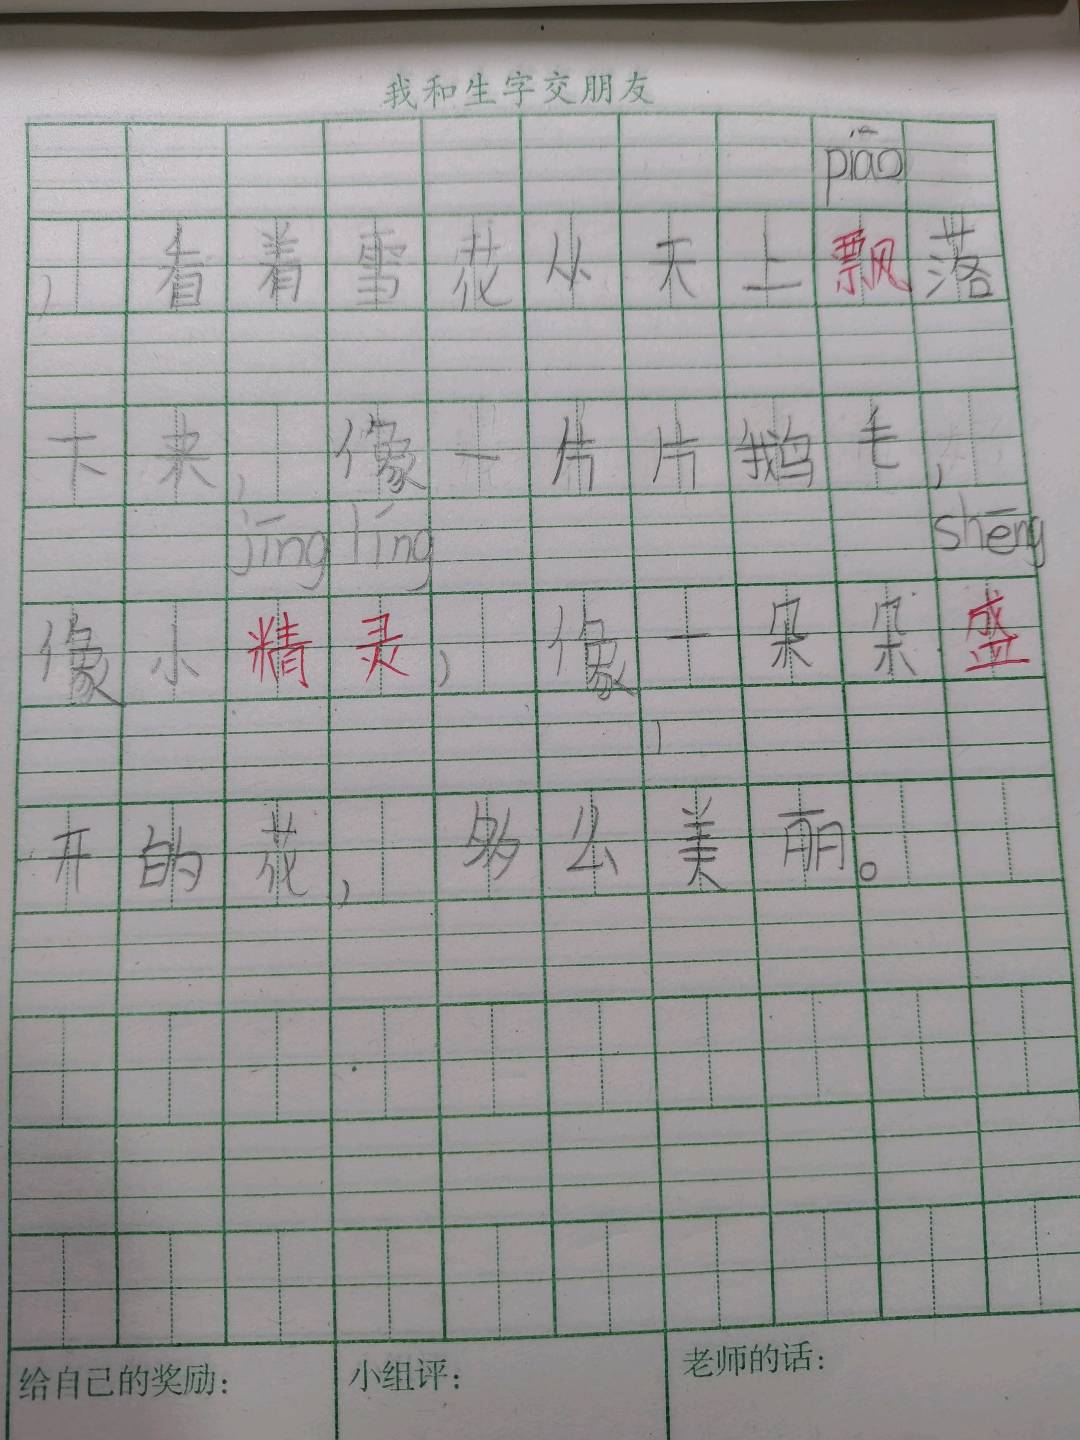 我和生字交朋友
piāo
，看着雪花从天上飘落
下来，像一片片鹅毛，
jīng líng shēng
像小精灵，像一朵朵盛
开的花，多么美丽。
给自己的奖励： 小组评： 老师的话：